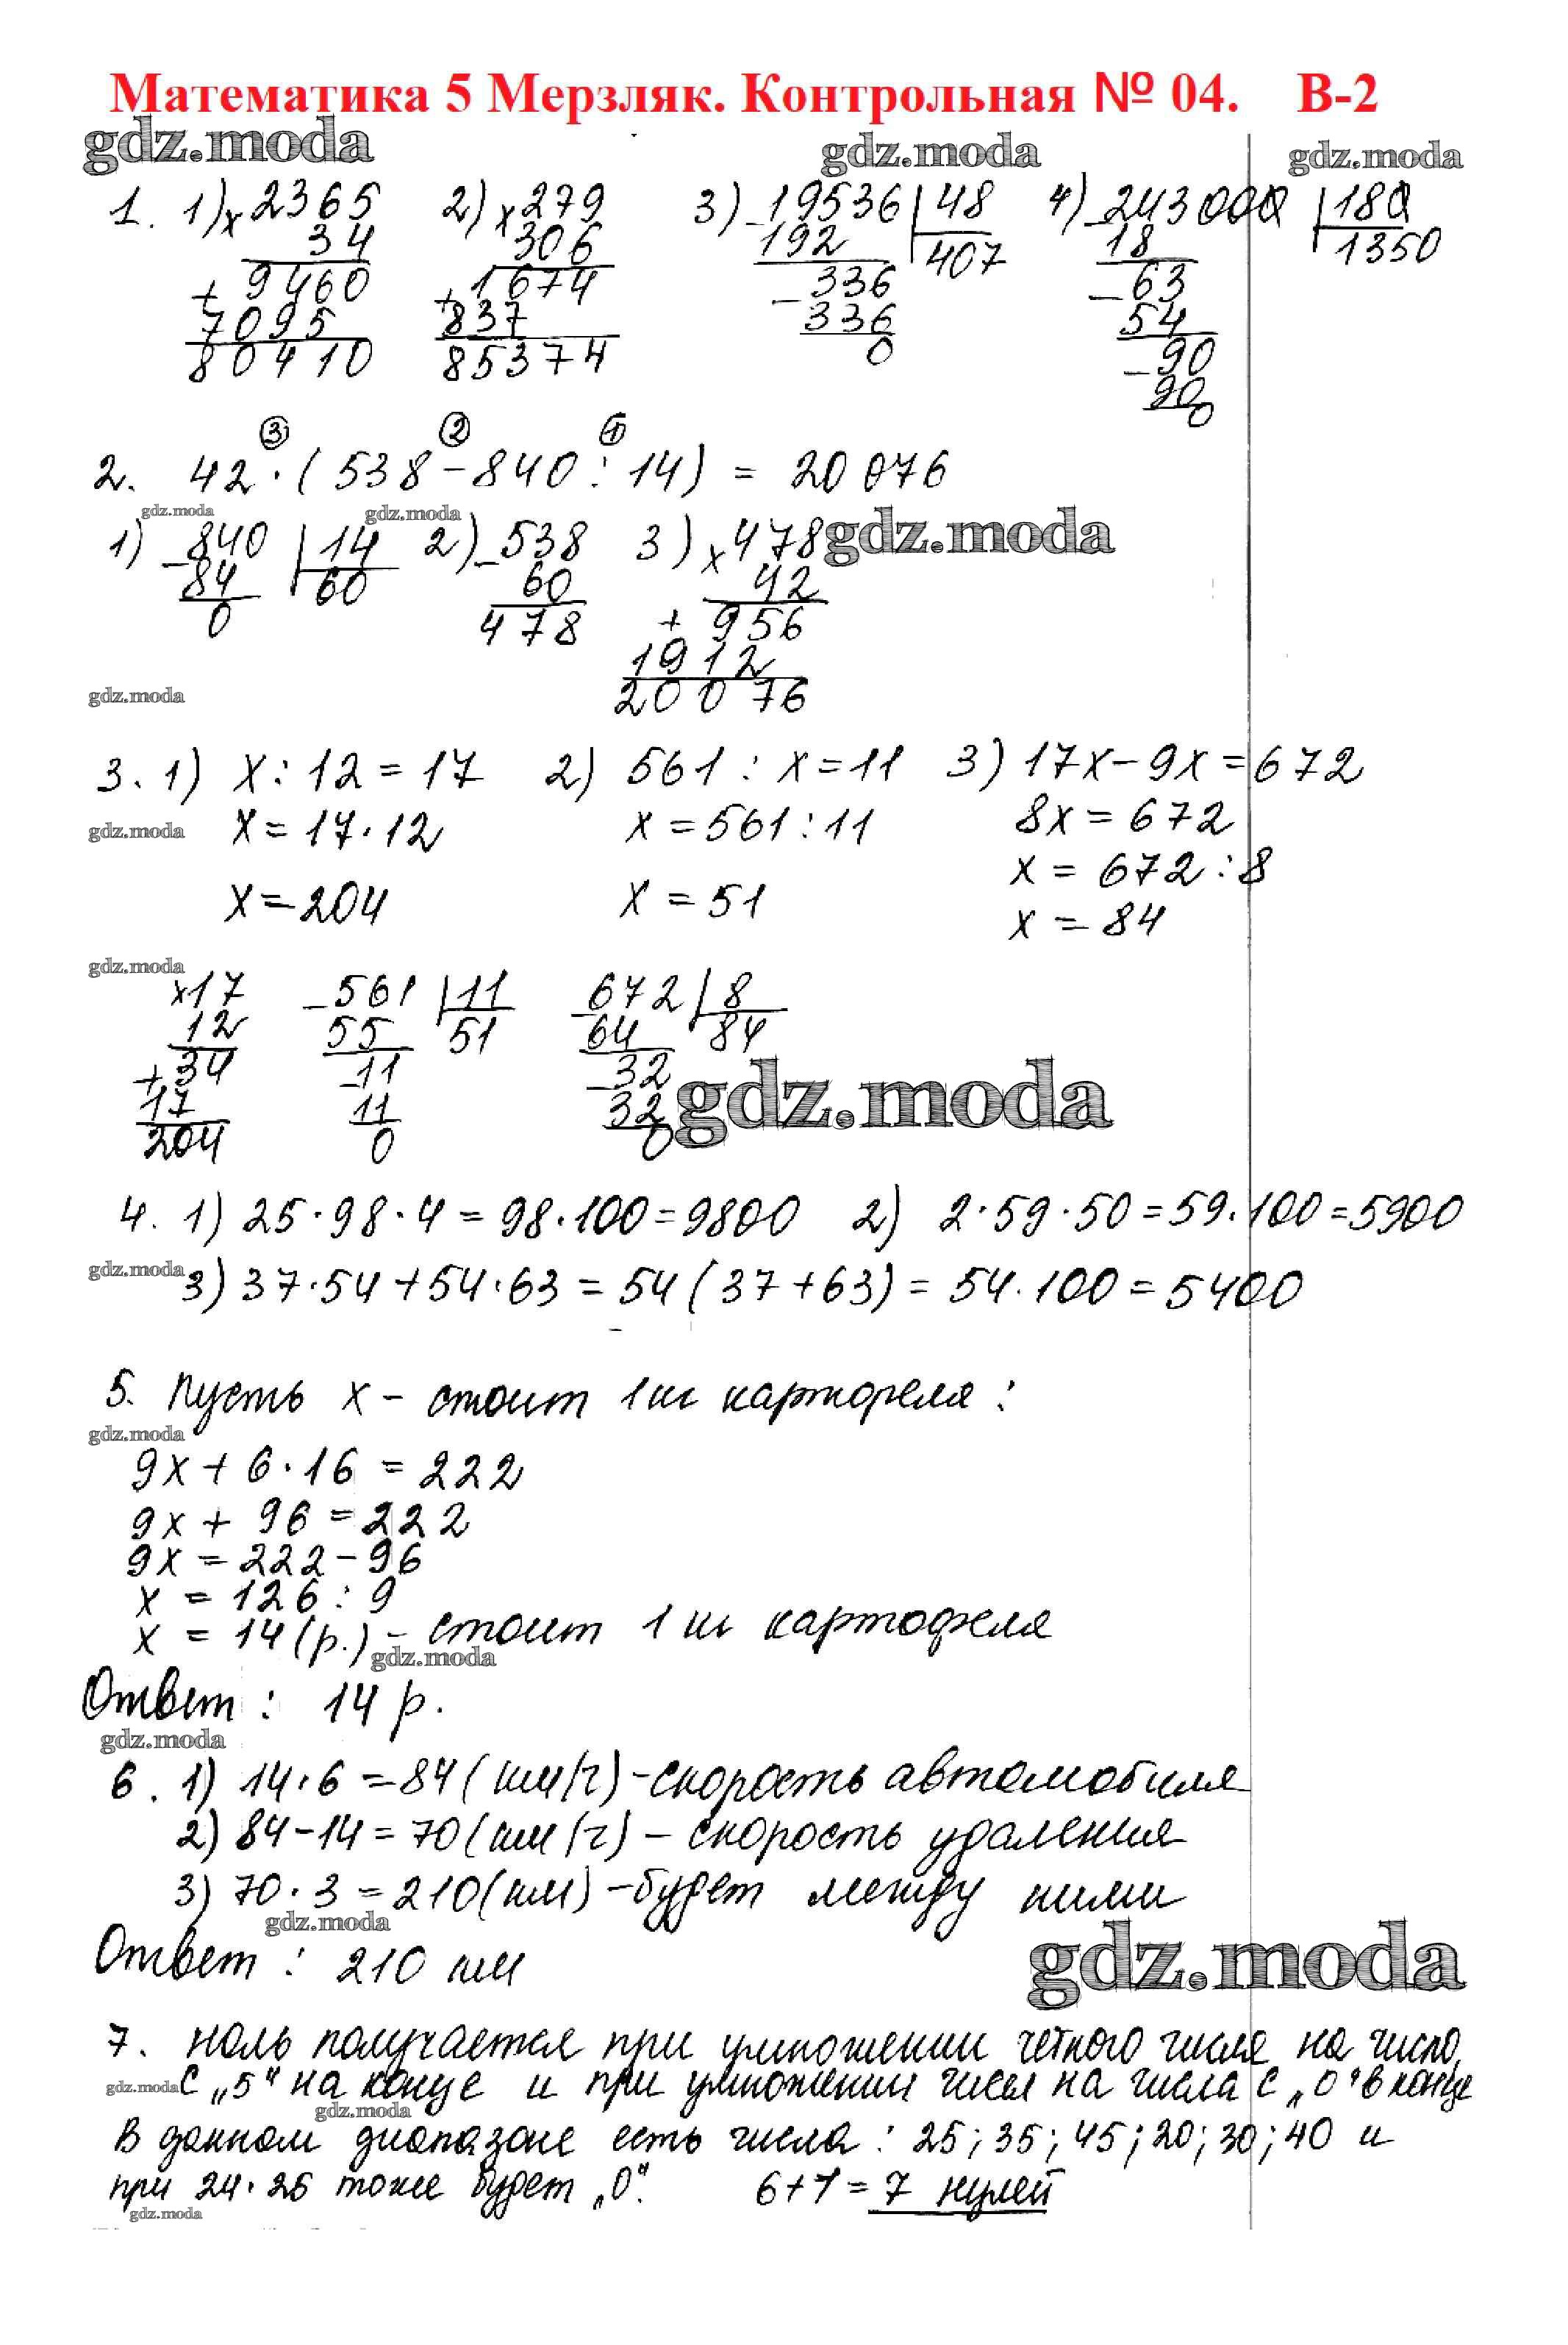 Математика 5 Мерзляк. Контрольная № 04. В-2
gdz.moda gdz.moda gdz.moda
1. 1) × 2365 2) × 279 3) - 19536 | 48 4) - 243000 | 180
34 306 192 407 18 1350
+ 9460 + 1674 - 336 - 63
7095 837 336 54
80410 85374 0 - 90
90
0
③ ② ①
2. 42 · ( 538 - 840 : 14 ) = 20 076
gdz.moda gdz.moda
1) - 840 | 14 2) - 538 3) × 478 gdz.moda
84 60 60 42
0 478 + 956
1912
gdz.moda 20076
3. 1) x : 12 = 17 2) 561 : x = 11 3) 17x - 9x = 672
gdz.moda x = 17 · 12 x = 561 : 11 8x = 672
x = 672 : 8
x = 204 x = 51 x = 84
gdz.moda
× 17 - 561 | 11 - 672 | 8
12 55 51 64 84
+ 34 - 11 - 32 gdz.moda
17 11 32
204 0 0
4. 1) 25 · 98 · 4 = 98 · 100 = 9800 2) 2 · 59 · 50 = 59 · 100 = 5900
gdz.moda 3) 37 · 54 + 54 · 63 = 54 ( 37 + 63 ) = 54 · 100 = 5400
5. Пусть x - стоит 1 кг картофеля :
gdz.moda
9x + 6 · 16 = 222
9x + 96 = 222
9x = 222 - 96
x = 126 : 9
x = 14 (р.) - стоит 1 кг картофеля
gdz.moda
Ответ : 14 р.
gdz.moda
6. 1) 14 · 6 = 84 (км/ч) - скорость автомобиля
2) 84 - 14 = 70 (км/ч) - скорость удаления
3) 70 · 3 = 210 (км) - будет между ними
gdz.moda
Ответ : 210 км
gdz.moda
7. ноль получается при умножении четного числа на число,
gdz.moda с „5“ на конце и при умножении чисел на числа с „0“ в конце
gdz.moda
В данном диапазоне есть числа : 25; 35; 45; 20; 30; 40 и
при 24 · 25 тоже будет „0“. 6 + 1 = 7 нулей
gdz.moda